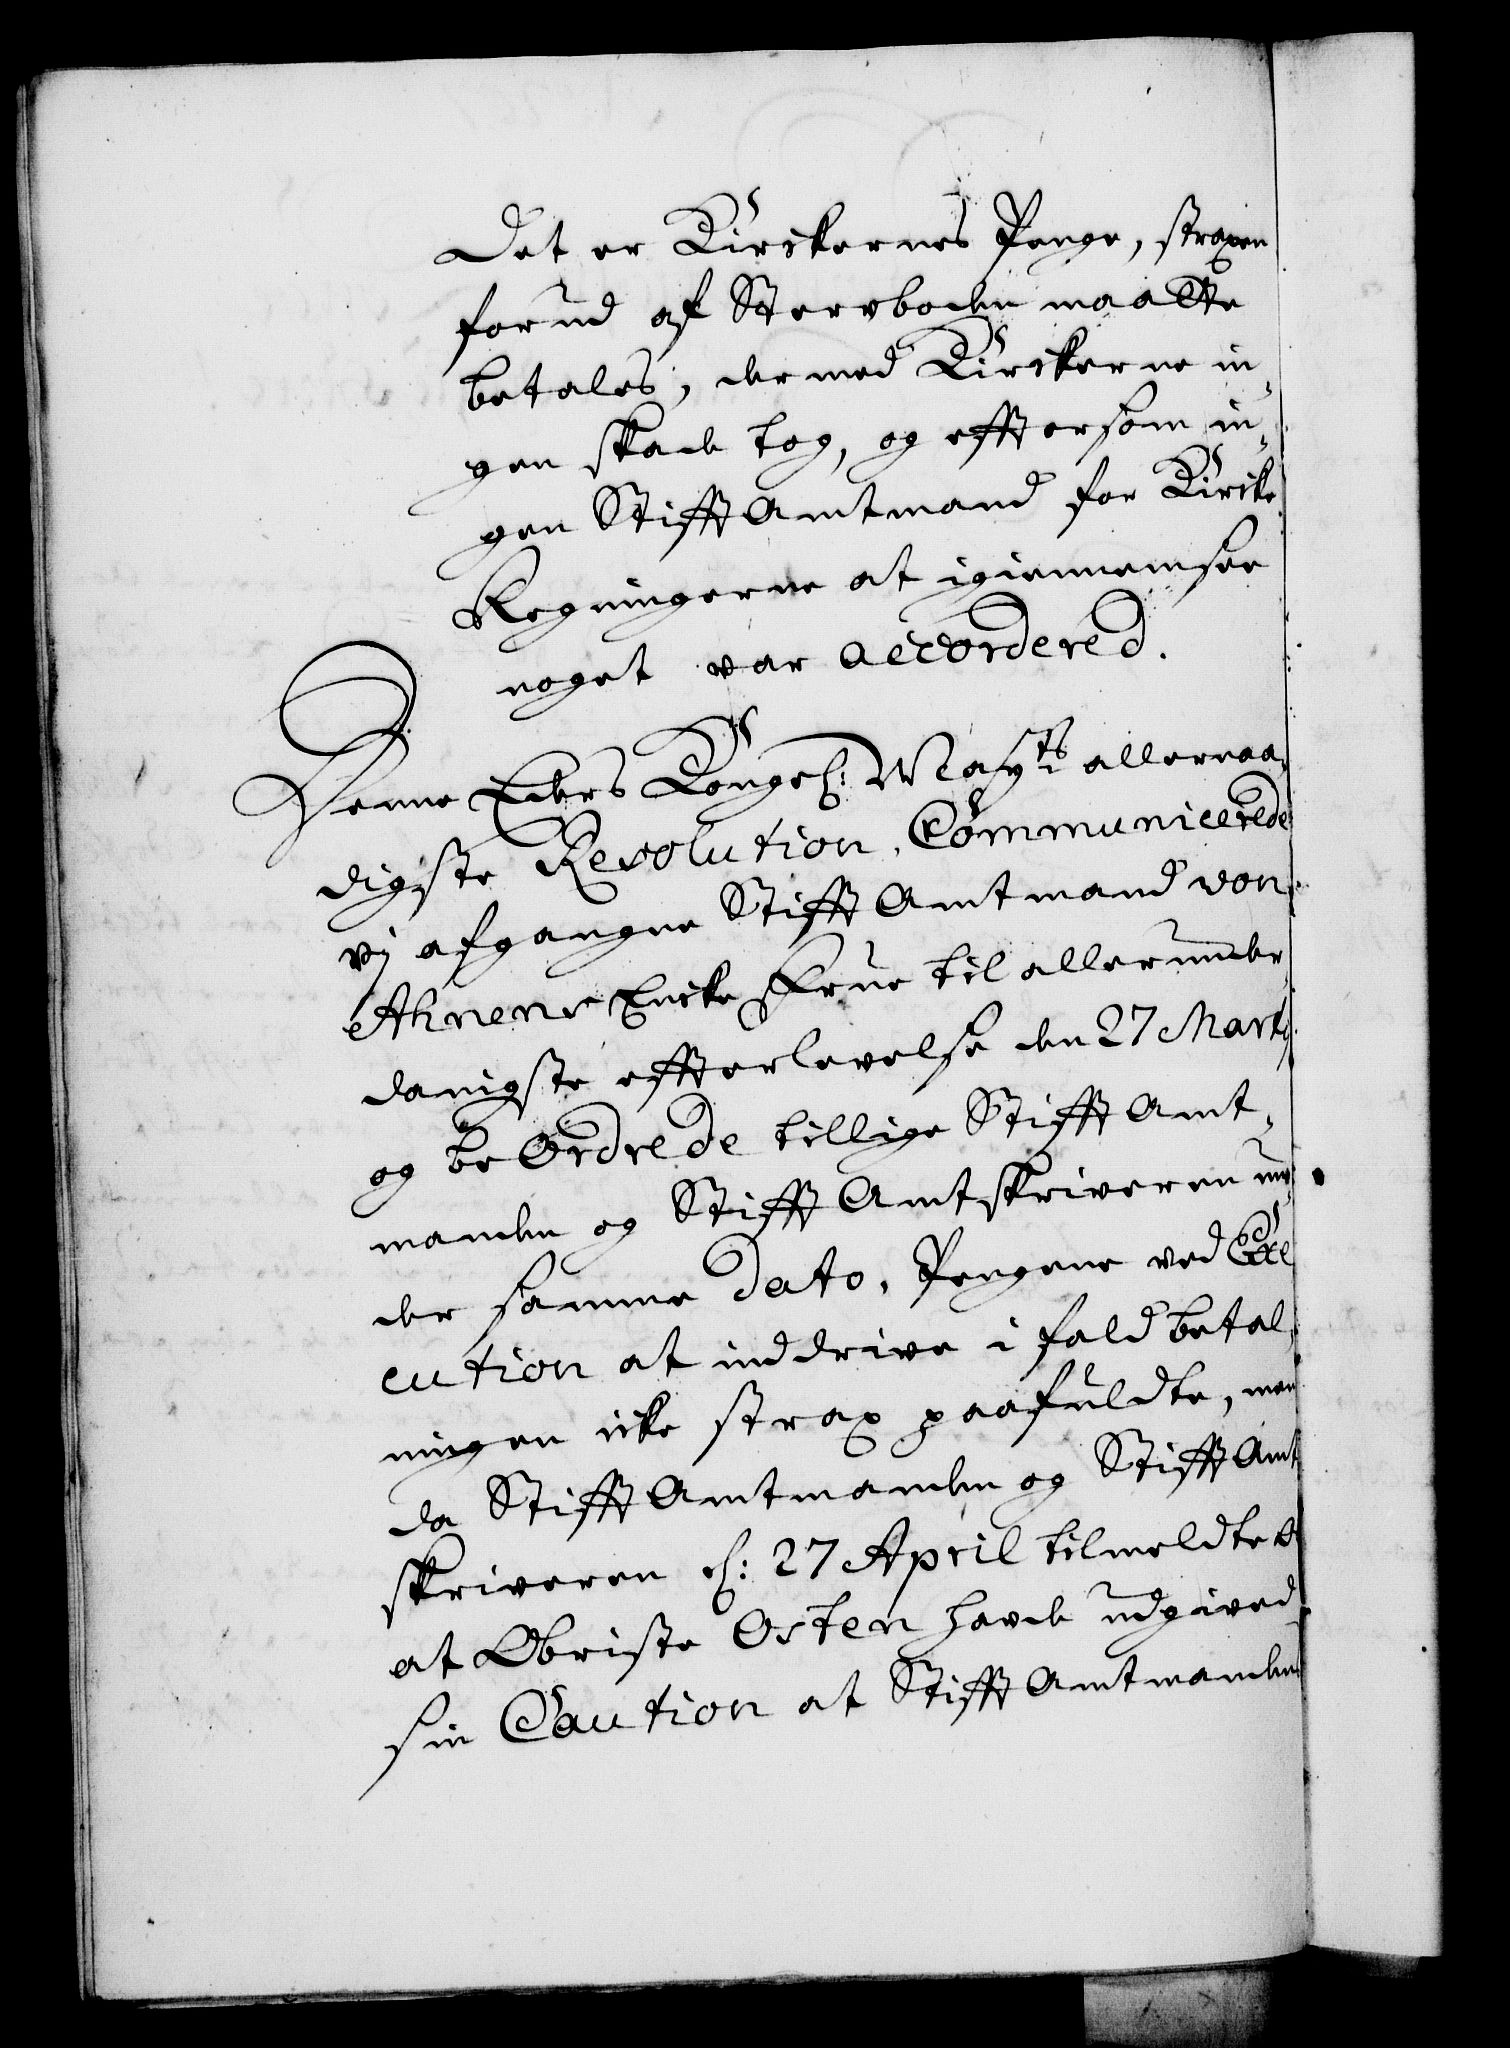 Det er Kirckernes Penge, straxen
forud af Stervboden maatte
betales, der med Kirckerne in-
gen skade tog, og effter som in-
gen Stifft Amtmand for Kircke
Regningerne at igiennemsee
noget var accorderet.
Denne Eders Kongel: Mayts allernaa-
digste Resolution, Communicerede
vj afgangne Stifft Amtmand von
Ahnens Encke Frue til allerunder-
danigste effterlevelse den 27 Martj
og be Ordrede tillige Stifft Amt-
manden og Stifft Amtskriveren un-
der samme dato, Pengene ved Exe
cution at inddrive i fald betal-
ningen icke strax paafuldte, men
da Stifft Amtmanden og Stifft Amt
skriveren d: 27 April tilmeldte os
at Obriste Osten havde udgived
sin Caution at Stifft Amtmanden